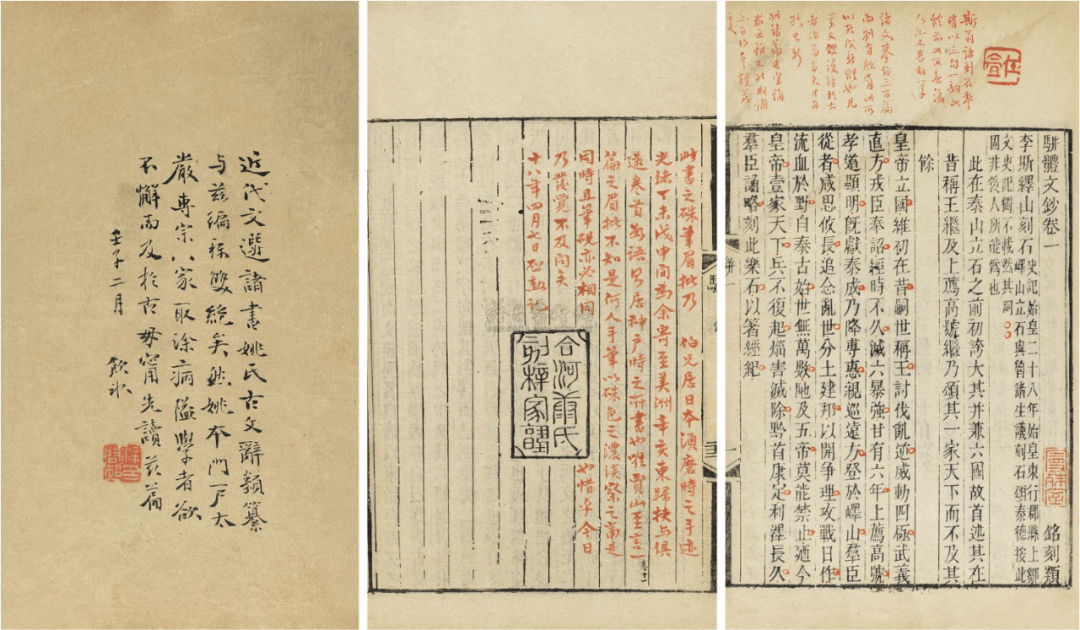 近代文選諸書姚氏古文辭類纂
与茲編称雙絶矣然姚本門戶太
嚴專宗八家取涂病隘學者欲
不懈而及於古毋寧先讀茲篇
壬子二月
飲冰
此書之硃筆眉批乃 伯兄居日本須磨時之手迹
光緒丁未戊申間為余寄至美洲辛亥東歸挾與俱
還卷首數語乃居神戶時之所書也唯賈山至言
篇之眉批不知是何人手筆以硃色之濃淡察之當是
同時且筆硯亦必相同 也惜乎今日
乃發覺不及問矣
十八年四月七日啟勳記
合河康氏
刻梓家塾
駢體文鈔卷一
銘刻類
李斯繹山刻石
史記始皇二十八年始皇東行郡縣上鄒
嶧山立石與魯諸生議刻石頌秦德按此
文史記獨不載然其詞
固非後人所能爲也
此在泰山立石之前初誇大其并兼六國故首述其在
昔稱王繼及上薦高號繼乃頌其一家天下而不及其
餘
皇帝立國維初在昔嗣世稱王討伐亂逆威動四極武義
直方戎臣奉詔經時不久滅六暴強廿有六年上薦高號
孝道顯明旣獻泰成乃降專惠親巡遠方登於嶧山羣臣
從者咸思攸長追念亂世分土建邦以開爭理攻戰日作
流血於野自泰古始世無萬數陁及五帝莫能禁止廼今
皇帝壹家天下兵不復起災害滅除黔首康定利澤長久
羣臣誦略刻此樂石以箸經紀